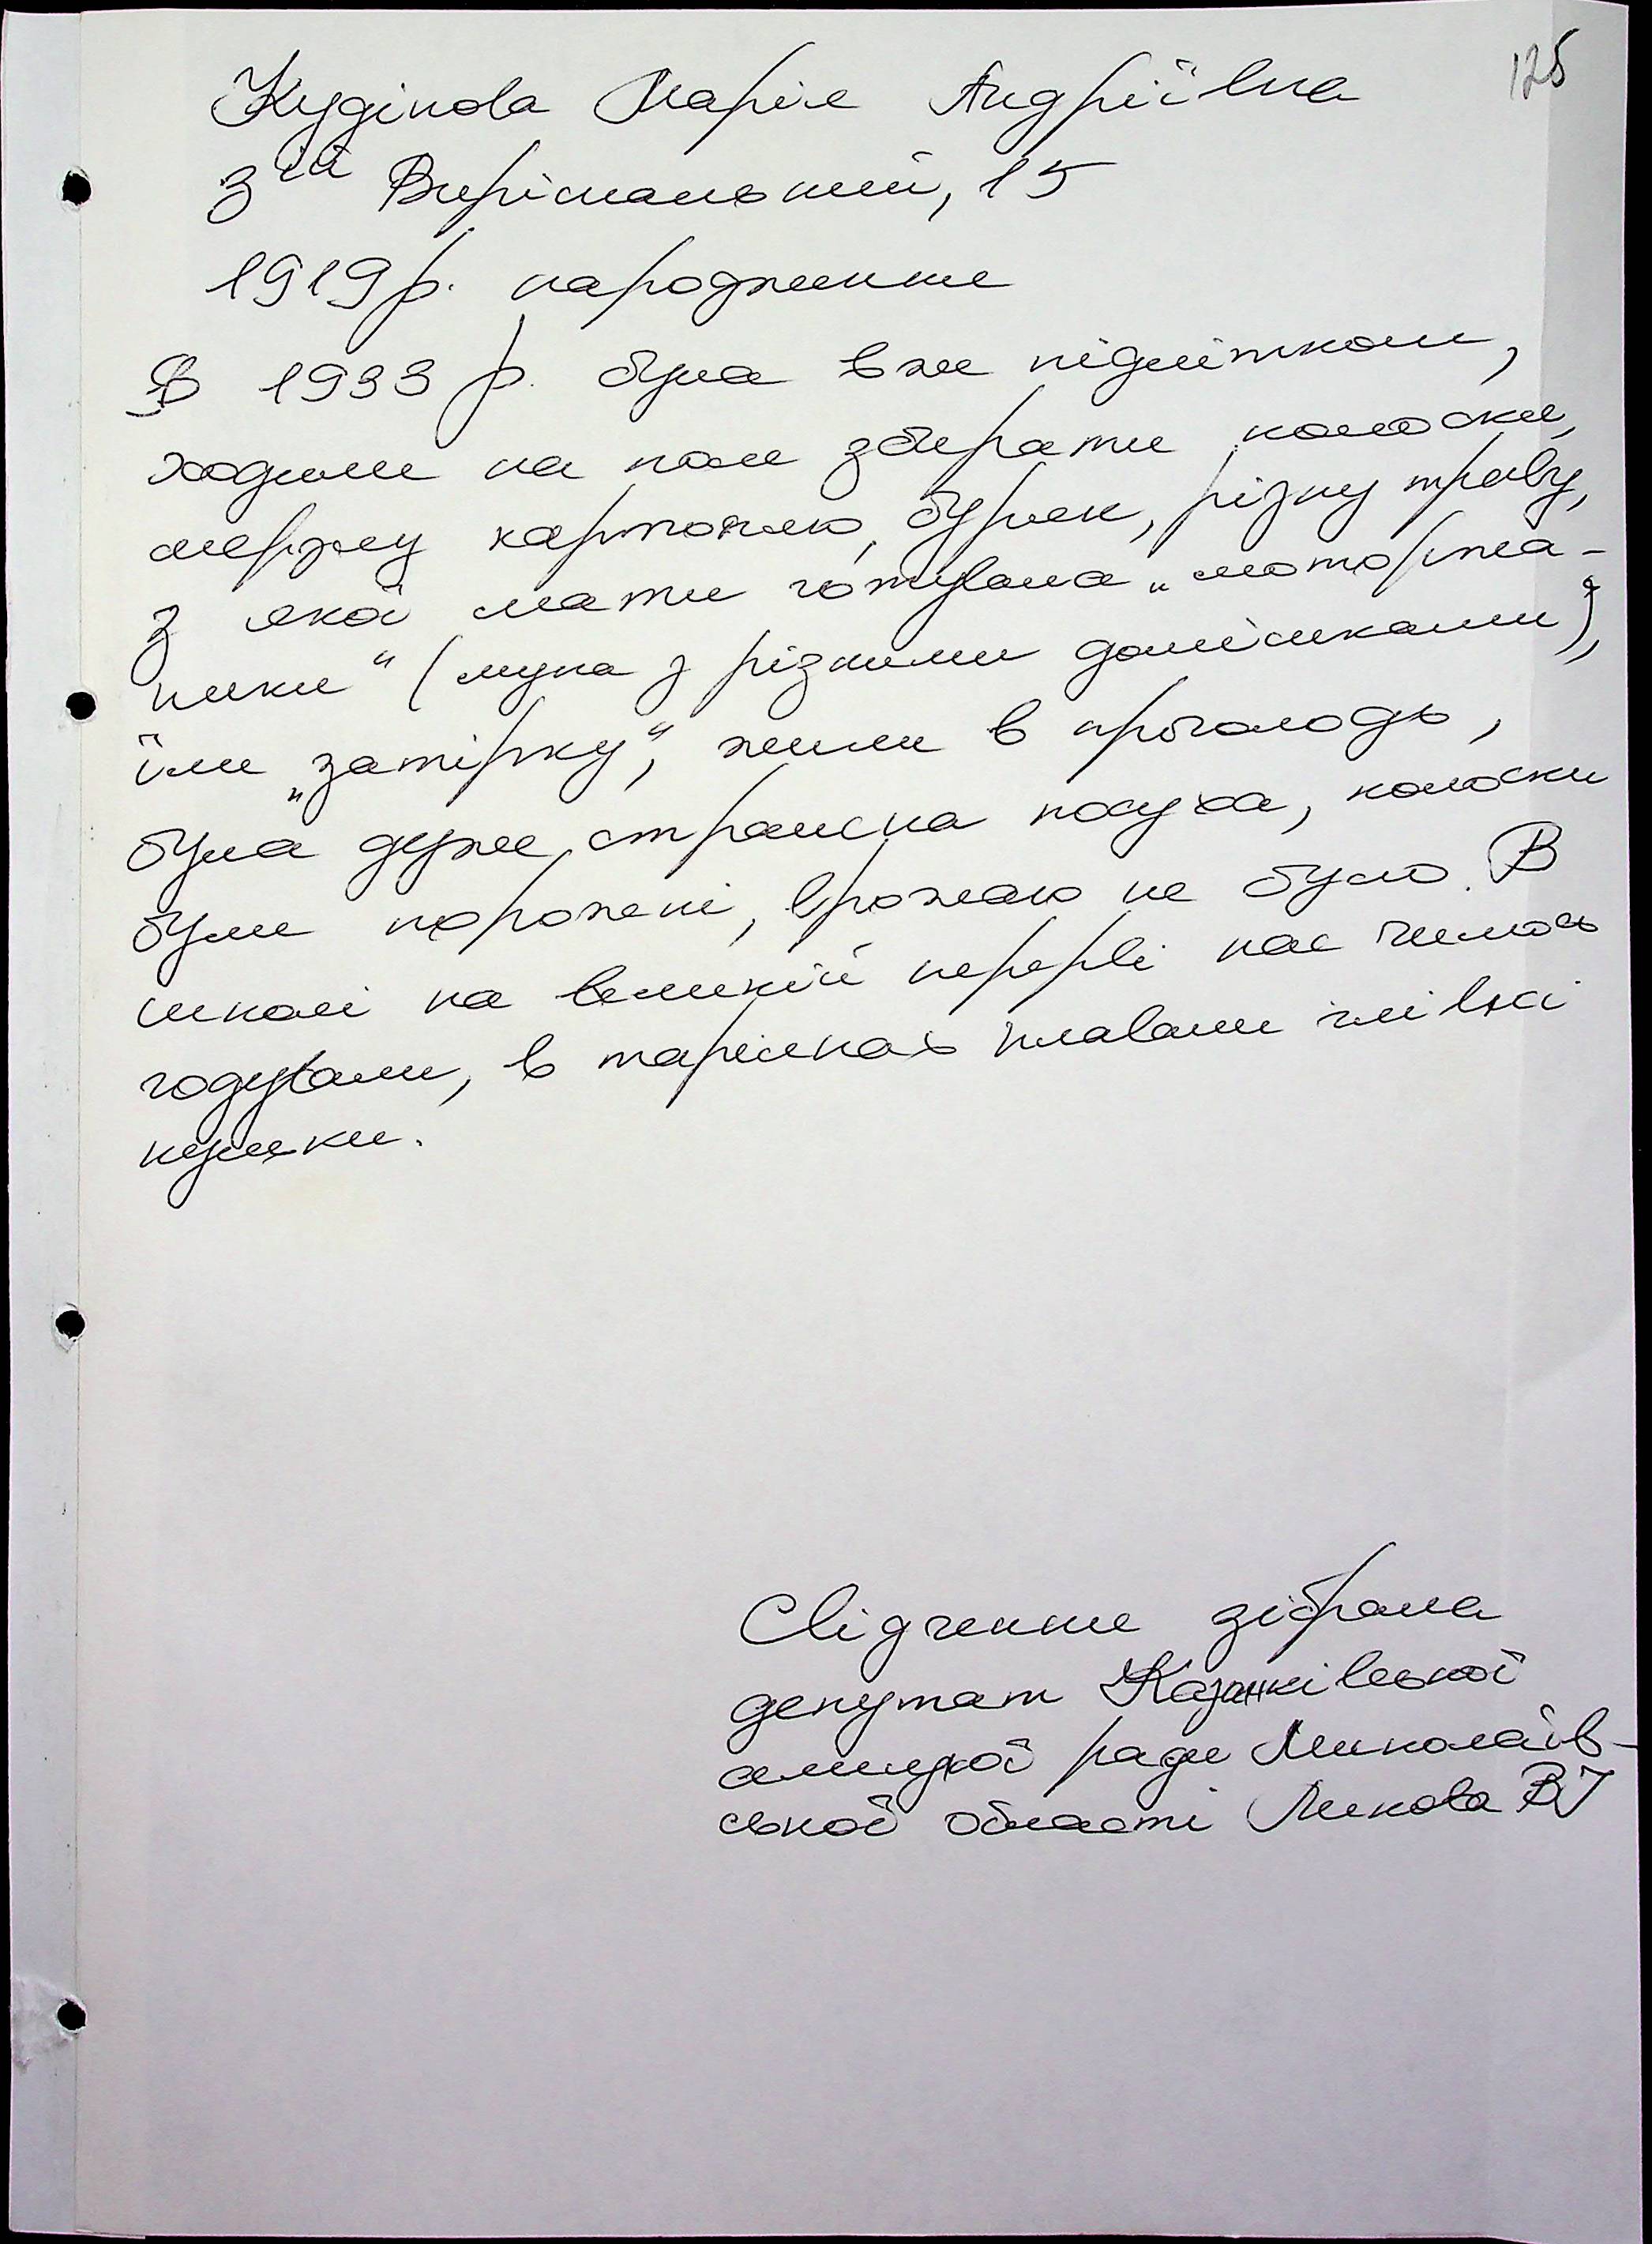 125
Кудінова Марія Андріївна
3ій Вирішальний, 15
1919 р. народження
В 1933 р. була вже підлітком,
ходили на поле збирати колоски,
мерзлу картоплю, буряк, різну траву,
з якої мати готувала „моторжа-
ники" (мука з різними домішками),
їли „затірку", жили в проголодь,
була дуже страшна посуха, колоски
були порожені, врожаю не було. В
школі на великій перерві нас чимось
годували, в тарілках плавали гливкі
куляки.
Свідчення зібрала
депутат Казанківської
селищної ради Миколаїв-
ської області Линова ВІ